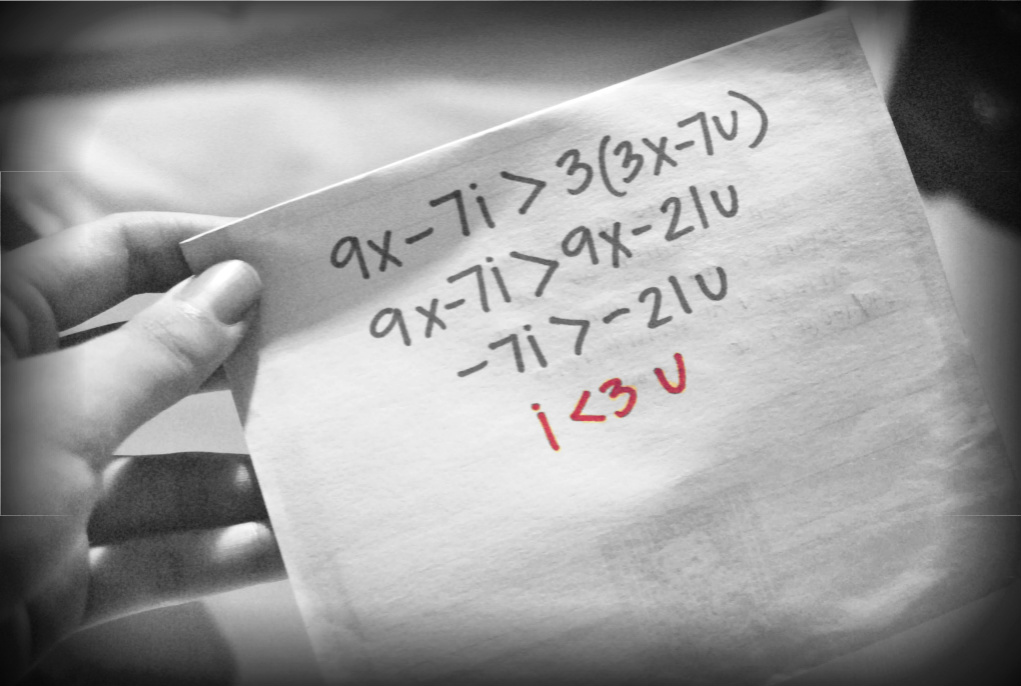 9x-7i > 3(3x-7u)
9x-7i > 9x-21u
-7i > -21u
i <3 u